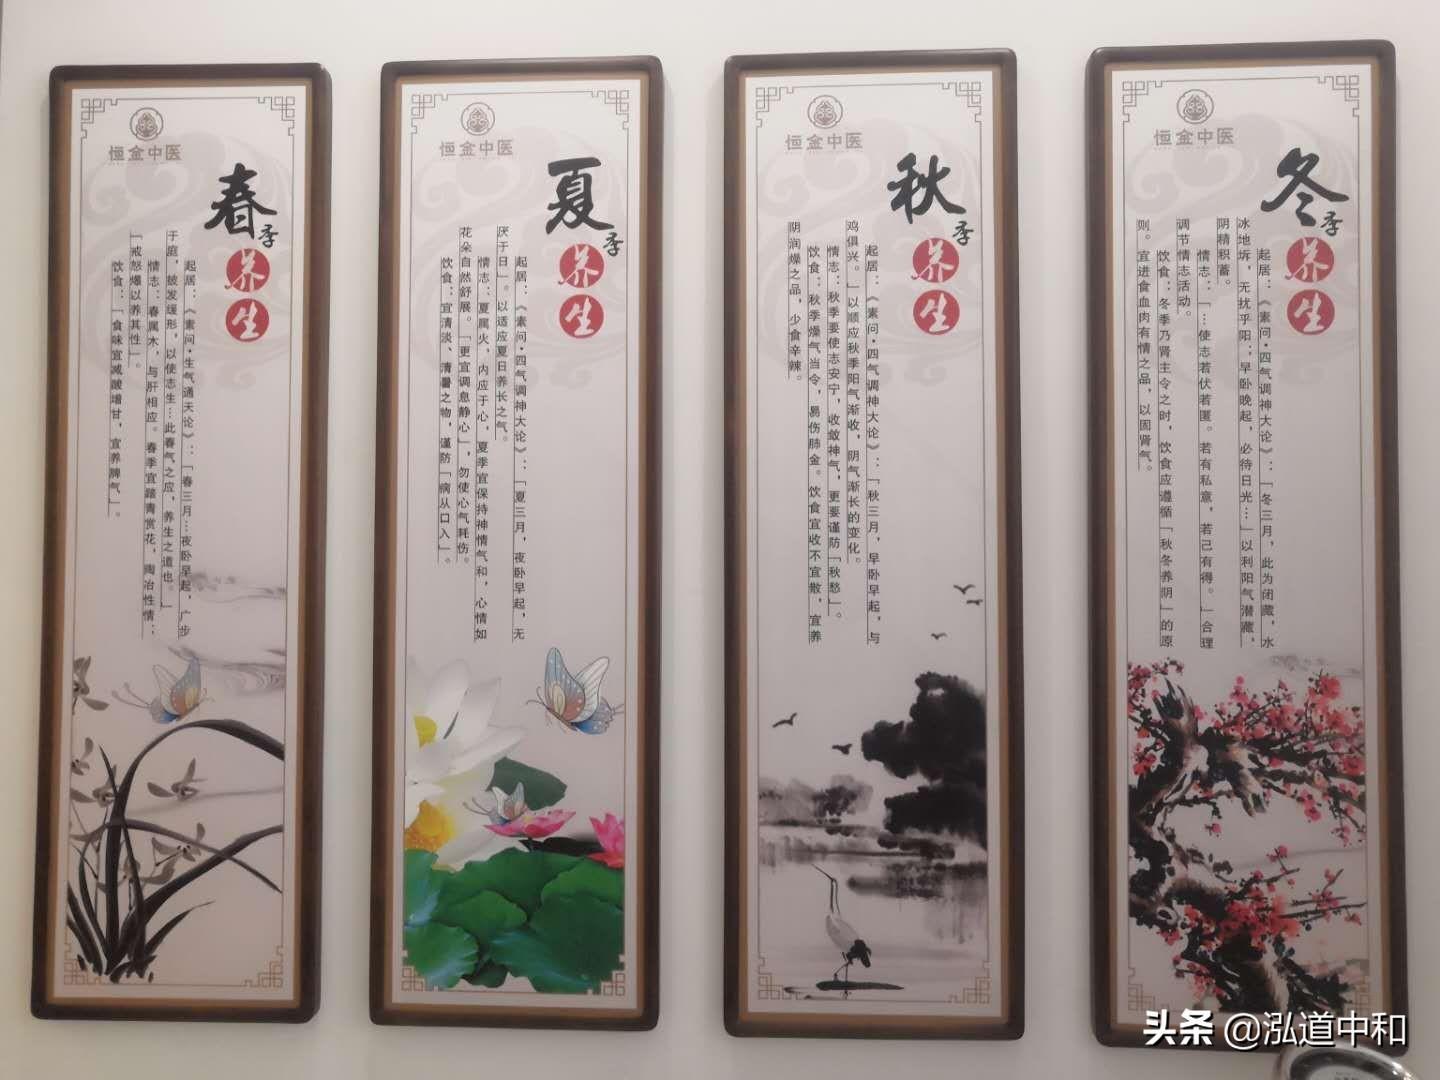 恒金中医
春季养生
起居：《素问·生气通天论》：「春三月…夜卧早起，广步
于庭，披发缓形，以使志生…此春气之应，养生之道也。」
情志：春属木，与肝相应。春季宜踏青赏花，陶冶性情；
「戒怒爆以养其性」。
饮食：「食味宜减酸增甘，宜养脾气」。
恒金中医
夏季养生
起居：《素问·四气调神大论》：「夏三月，夜卧早起，无
厌于日」。以适应夏日养长之气。
情志：夏属火，内应于心，夏季宜保持神情气和，心情如
花朵自然舒展。「更宜调息静心」，勿使心气耗伤。
饮食：宜清淡、清暑之物，谨防「病从口入」。
恒金中医
秋季养生
起居：《素问·四气调神大论》：「秋三月，早卧早起，与
鸡俱兴。」以顺应秋季阳气渐收，阴气渐长的变化。
情志：秋季要使志安宁，收敛神气，更要谨防「秋愁」。
饮食：秋季燥气当令，易伤肺金。饮食宜收不宜散，宜养
阴润燥之品，少食辛辣。
恒金中医
冬季养生
起居：《素问·四气调神大论》：「冬三月，此为闭藏，水
冰地坼，无扰乎阳；早卧晚起，必待日光…」以利阳气潜藏，
阴精积蓄。
情志：「…使志若伏若匿。若有私意，若己有得。」合理
调节情志活动。
饮食：冬季乃肾主令之时，饮食应遵循「秋冬养阴」的原
则。宜进食血肉有情之品，以固肾气。
头条 @泓道中和